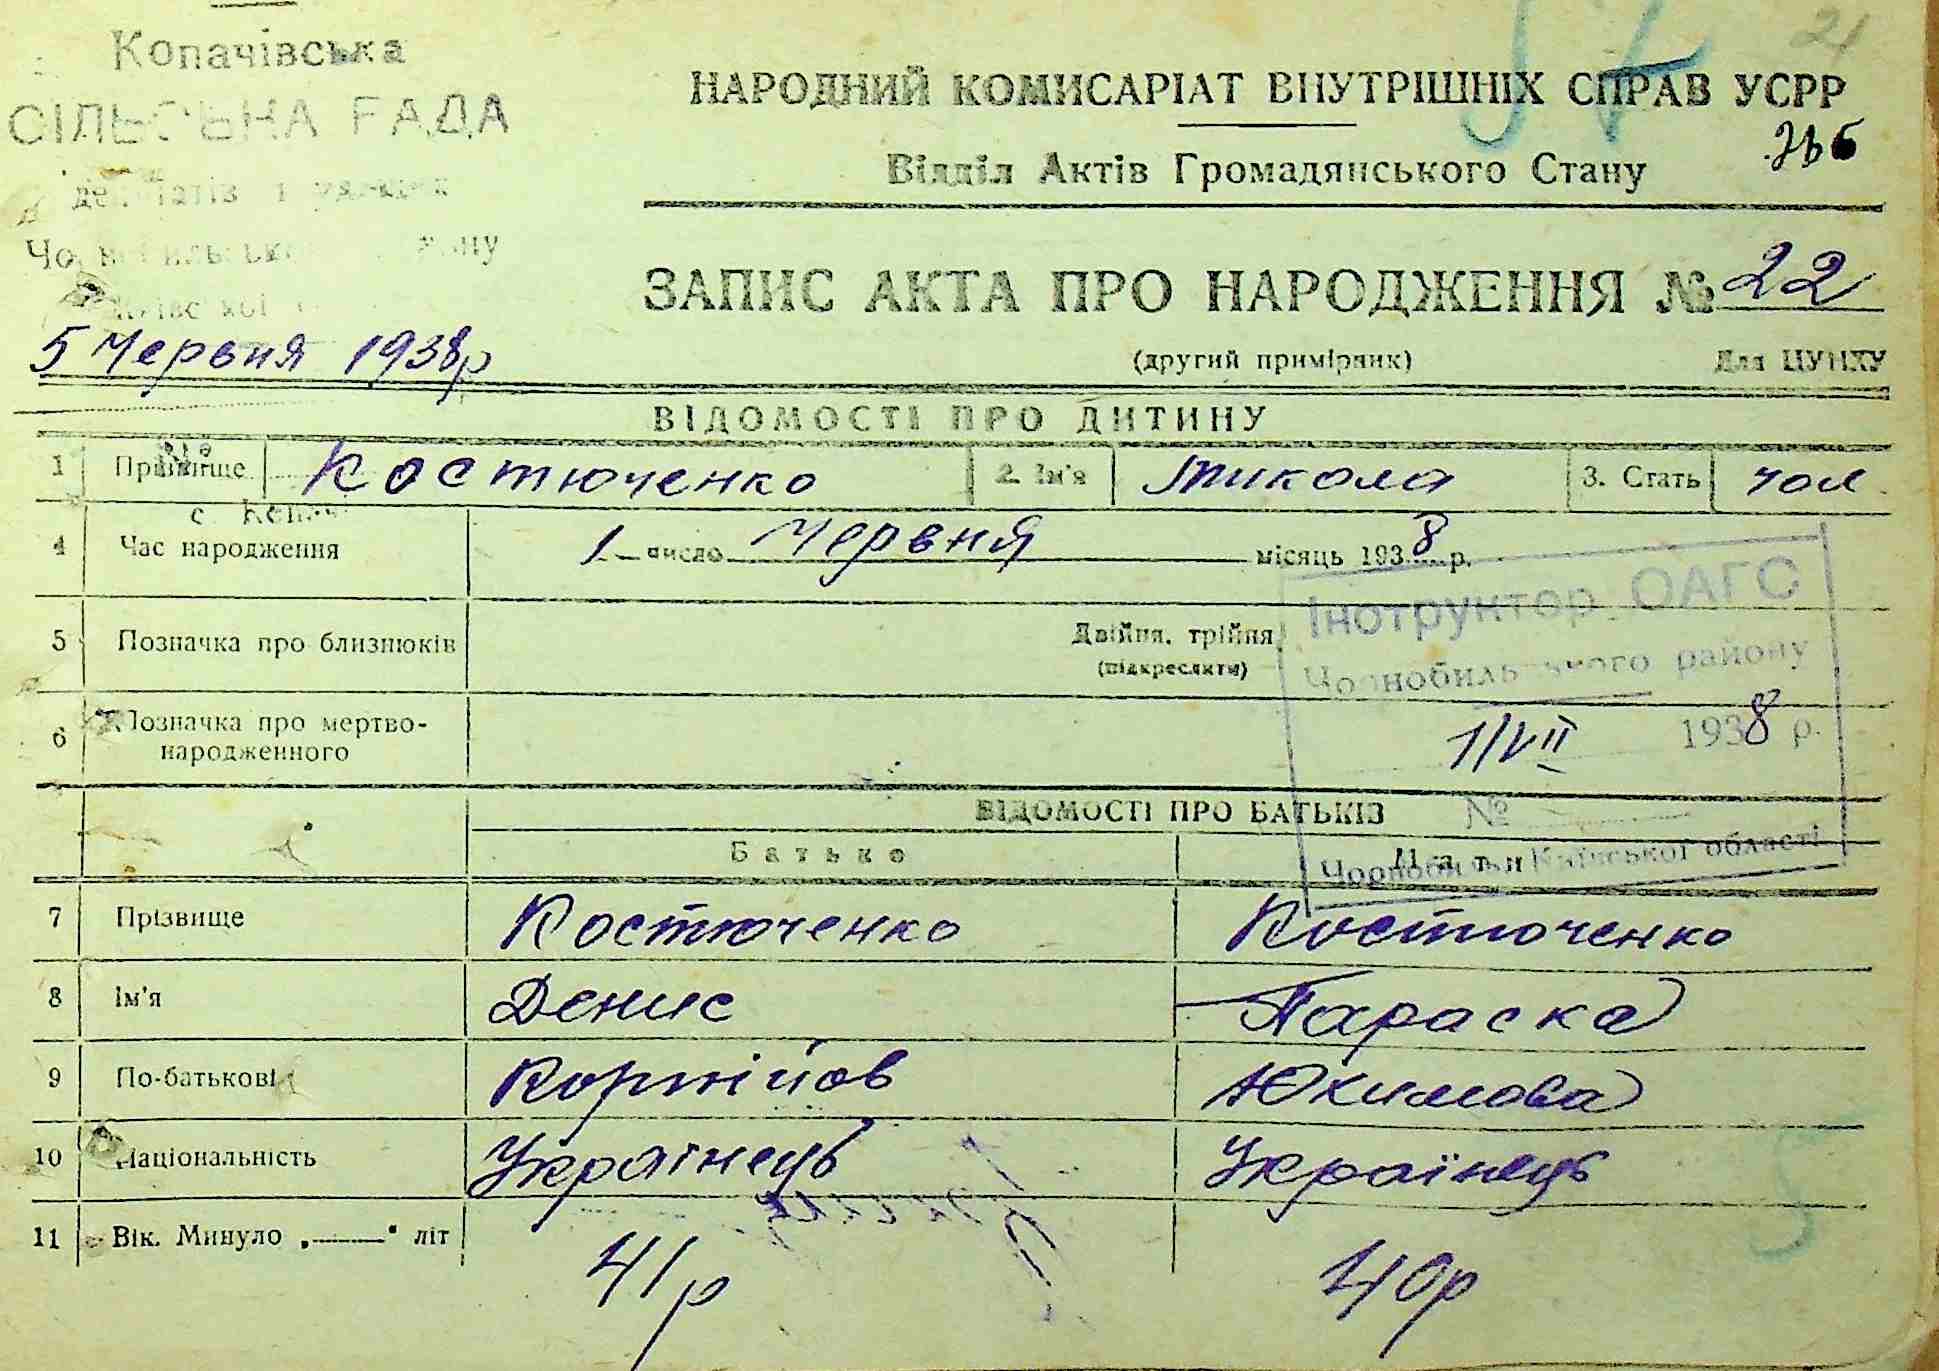 Копачівська
СІЛЬСЬКА РАДА
5 Червня 1938р
21
НАРОДНИЙ КОМИСАРІАТ ВНУТРІШНІХ СПРАВ УСРР
Відділ Актів Громадянського Стану
ЗАПИС АКТА ПРО НАРОДЖЕННЯ № 22
(другий примірник) Для ЦУНХУ
ВІДОМОСТІ ПРО ДИТИНУ
1 Прізвище Костюченко 2. Ім'я Микола 3. Стать чол
4 Час народження 1 число Червня місяць 1938 р.
5 Позначка про близнюків Двійня, трійня
(підкреслити)
6 Позначка про мертво-
народженного
Інструктор ОАГС
Чорнобильського району
1/VII 1938 р.
№
Чорнобиль Київської області
ВІДОМОСТІ ПРО БАТЬКІВ
Батько Мати
7 Прізвище Костюченко Костюченко
8 Ім'я Денис Параска
9 По-батькові Корнійов Юхимова
10 Національність Українець Українець
11 Вік. Минуло „ “ літ 41р 40р